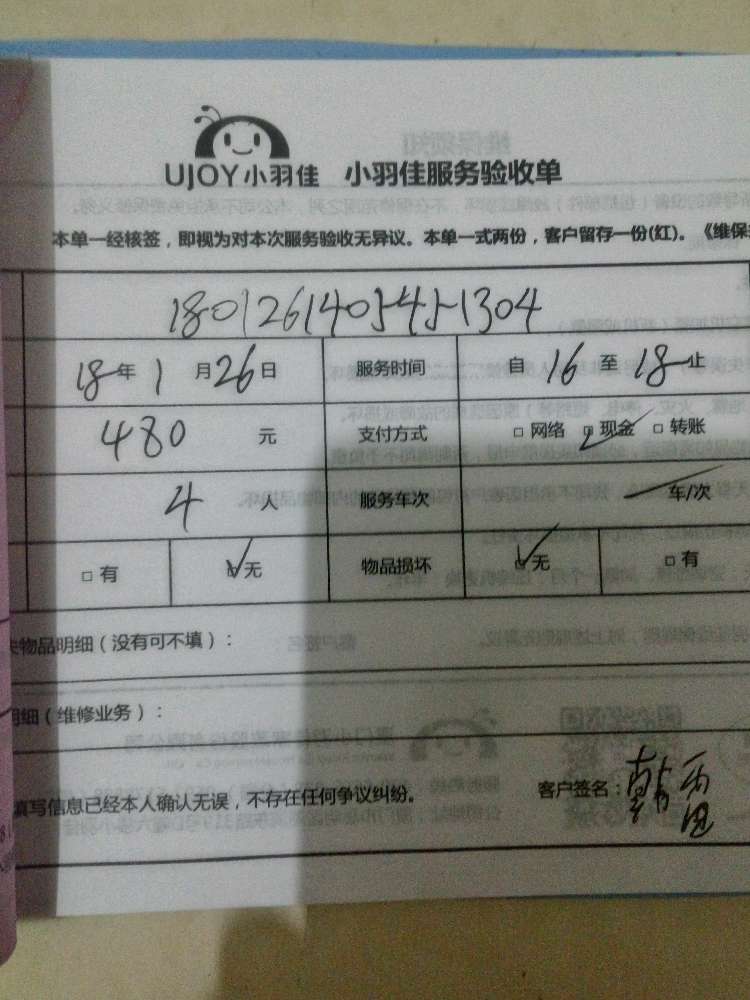 UJOY小羽佳 小羽佳服务验收单
本单一经核签，即视为对本次服务验收无异议。本单一式两份，客户留存一份(红)。《维保
18年1月26日 服务时间 自16至18止
480元 支付方式 □网络 □现金 □转账
4人 服务车次 车/次
□有 □无 物品损坏 □无 □有
失物品明细（没有可不填）：
明细（维修业务）：
填写信息已经本人确认无误，不存在任何争议纠纷。 客户签名：韩雷